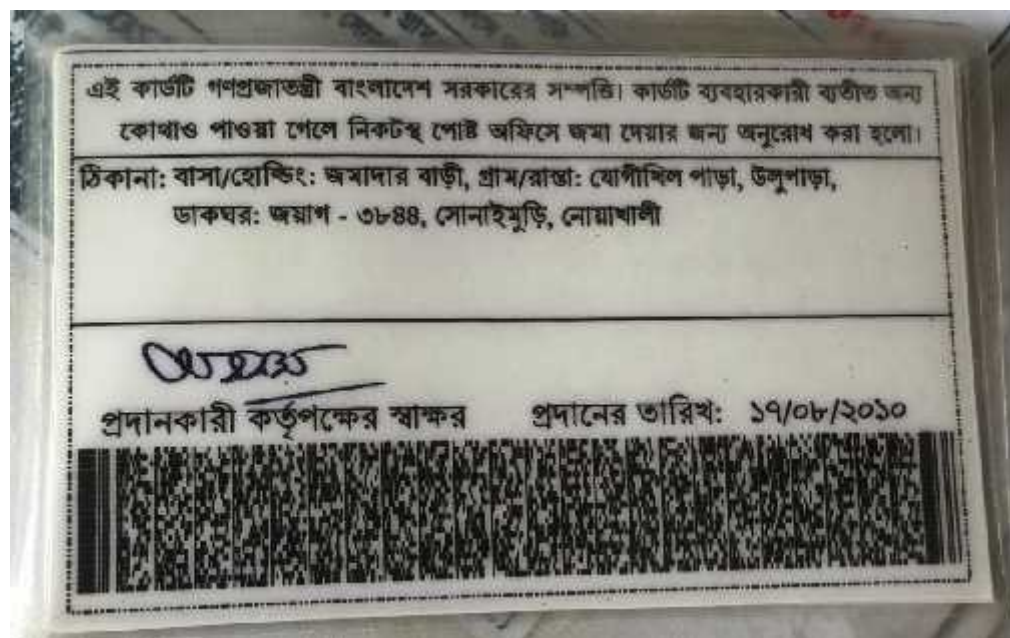 এই কার্ডটি গণপ্রজাতন্ত্রী বাংলাদেশ সরকারের সম্পত্তি। কার্ডটি ব্যবহারকারী ব্যতীত অন্য
কোথাও পাওয়া গেলে নিকটস্থ পোষ্ট অফিসে জমা দেয়ার জন্য অনুরোধ করা হলো।
ঠিকানা: বাসা/হোল্ডিং: জমাদার বাড়ী, গ্রাম/রাস্তা: যোগীখিল পাড়া, উলুপাড়া,
ডাকঘর: জয়াগ - ৩৮৪৪, সোনাইমুড়ি, নোয়াখালী
প্রদানকারী কর্তৃপক্ষের স্বাক্ষর প্রদানের তারিখ: ১৭/০৮/২০১০